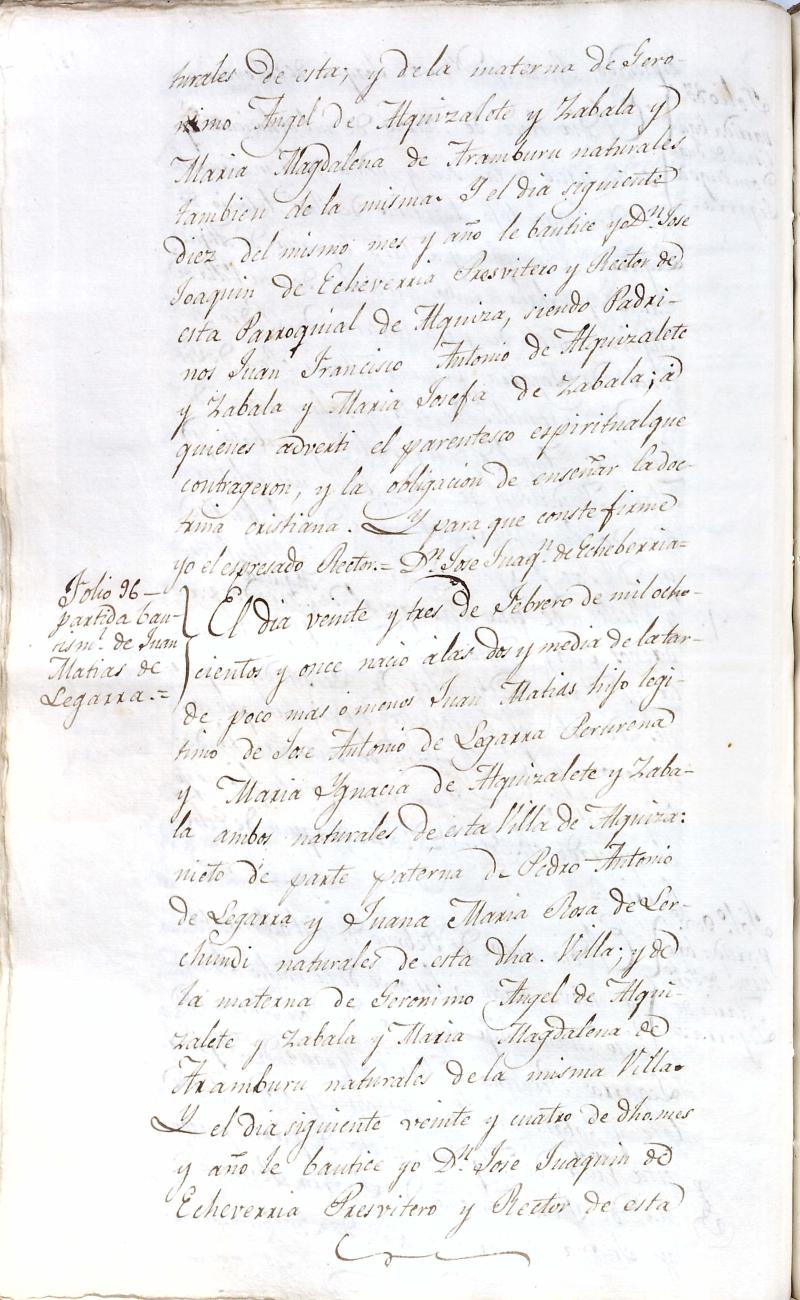 turales de esta; y dela materna de Gero-
nimo Angel de Alquizalete y Zabala y
Maria Magdalena de Aramburu naturales
tambien de la misma. Y el dia siguiente
diez del mismo mes y año le bautice yo Dn. Jose
Joaquin de Echeverria Presvitero y Rector de
esta Parroquial de Alquiza, siendo Padri-
nos Juan Francisco Antonio de Alquizalete
y Zabala y Maria Josefa de Zabala; à
quienes adverti el parentesco espiritual que
contrageron, y la obligacion de enseñar la doc-
trina cristiana. Y para que conste firmé
yo el espresado Rector.= Dn. Jose Juaqn. de Echeberria=
Folio 96—
partida bau-
tisml. de Juan
Matias de
Legarra.=
El dia veinte y tres de Febrero de mil ocho-
cientos y once nacio à las dos y media de la tar-
de poco mas ò menos Juan Matias hijo legi-
timo de Jose Antonio de Legarra Perurena
y Maria Ygnacia de Alquizalete y Zaba-
la ambos naturales de esta Villa de Alquiza:
nieto de parte paterna de Pedro Antonio
de Legarra y Juana Maria Rosa de Ler-
chundi naturales de esta dha. Villa; y de
la materna de Geronimo Angel de Alqui-
zalete y Zabala y Maria Magdalena de
Aramburu naturales de la misma Villa.
Y el dia siguiente veinte y cuatro de dho. mes
y año le bautice yo Dn. Jose Juaquin de
Echeverria Presvitero y Rector de esta